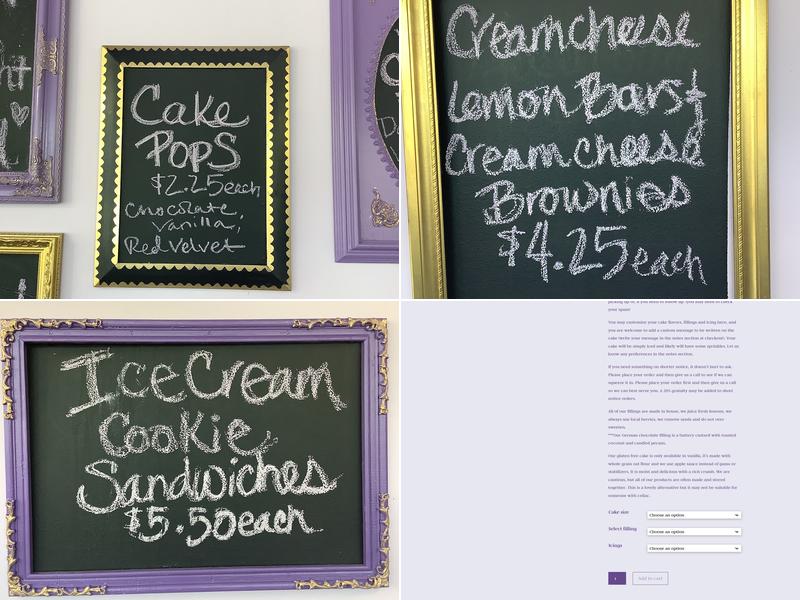 Cake
Pops
$2.25 each
Chocolate,
Vanilla,
Red Velvet
Creamcheese
Lemon Bars +
Cream cheese
Brownies
$4.25 each
Ice Cream
Cookie
Sandwiches
$5.50 each
your spam!
You may customize your cake flavors, fillings and icing here, and
you are welcome to add a custom message to be written on the
cake (write your message in the notes section at checkout). Your
cake will be simply iced and likely will have some sprinkles. Let us
know any preferences in the notes section.
If you need something on shorter notice, it doesn't hurt to ask.
Please place your order and then give us a call to see if we can
squeeze it in. Please place your order first and then give us a call
so we can best serve you. A 20% gratuity may be added to short
notice orders.
All of our fillings are made in house, we juice fresh lemons, we
always use local berries, we remove seeds and do not over
sweeten.
***Our German chocolate filling is a buttery custard with toasted
coconut and candied pecans.
Our gluten free cake is only available in vanilla, it's made with
whole grain oat flour and we use apple sauce instead of gums or
stabilizers. It is moist and delicious with a rich crumb. We are
cautious, but all of our products are often made and stored
together. This is a lovely alternative but it may not be suitable for
someone with celiac.
Cake size
Choose an option
Select filling
Choose an option
Icings
Choose an option
1
Add to cart